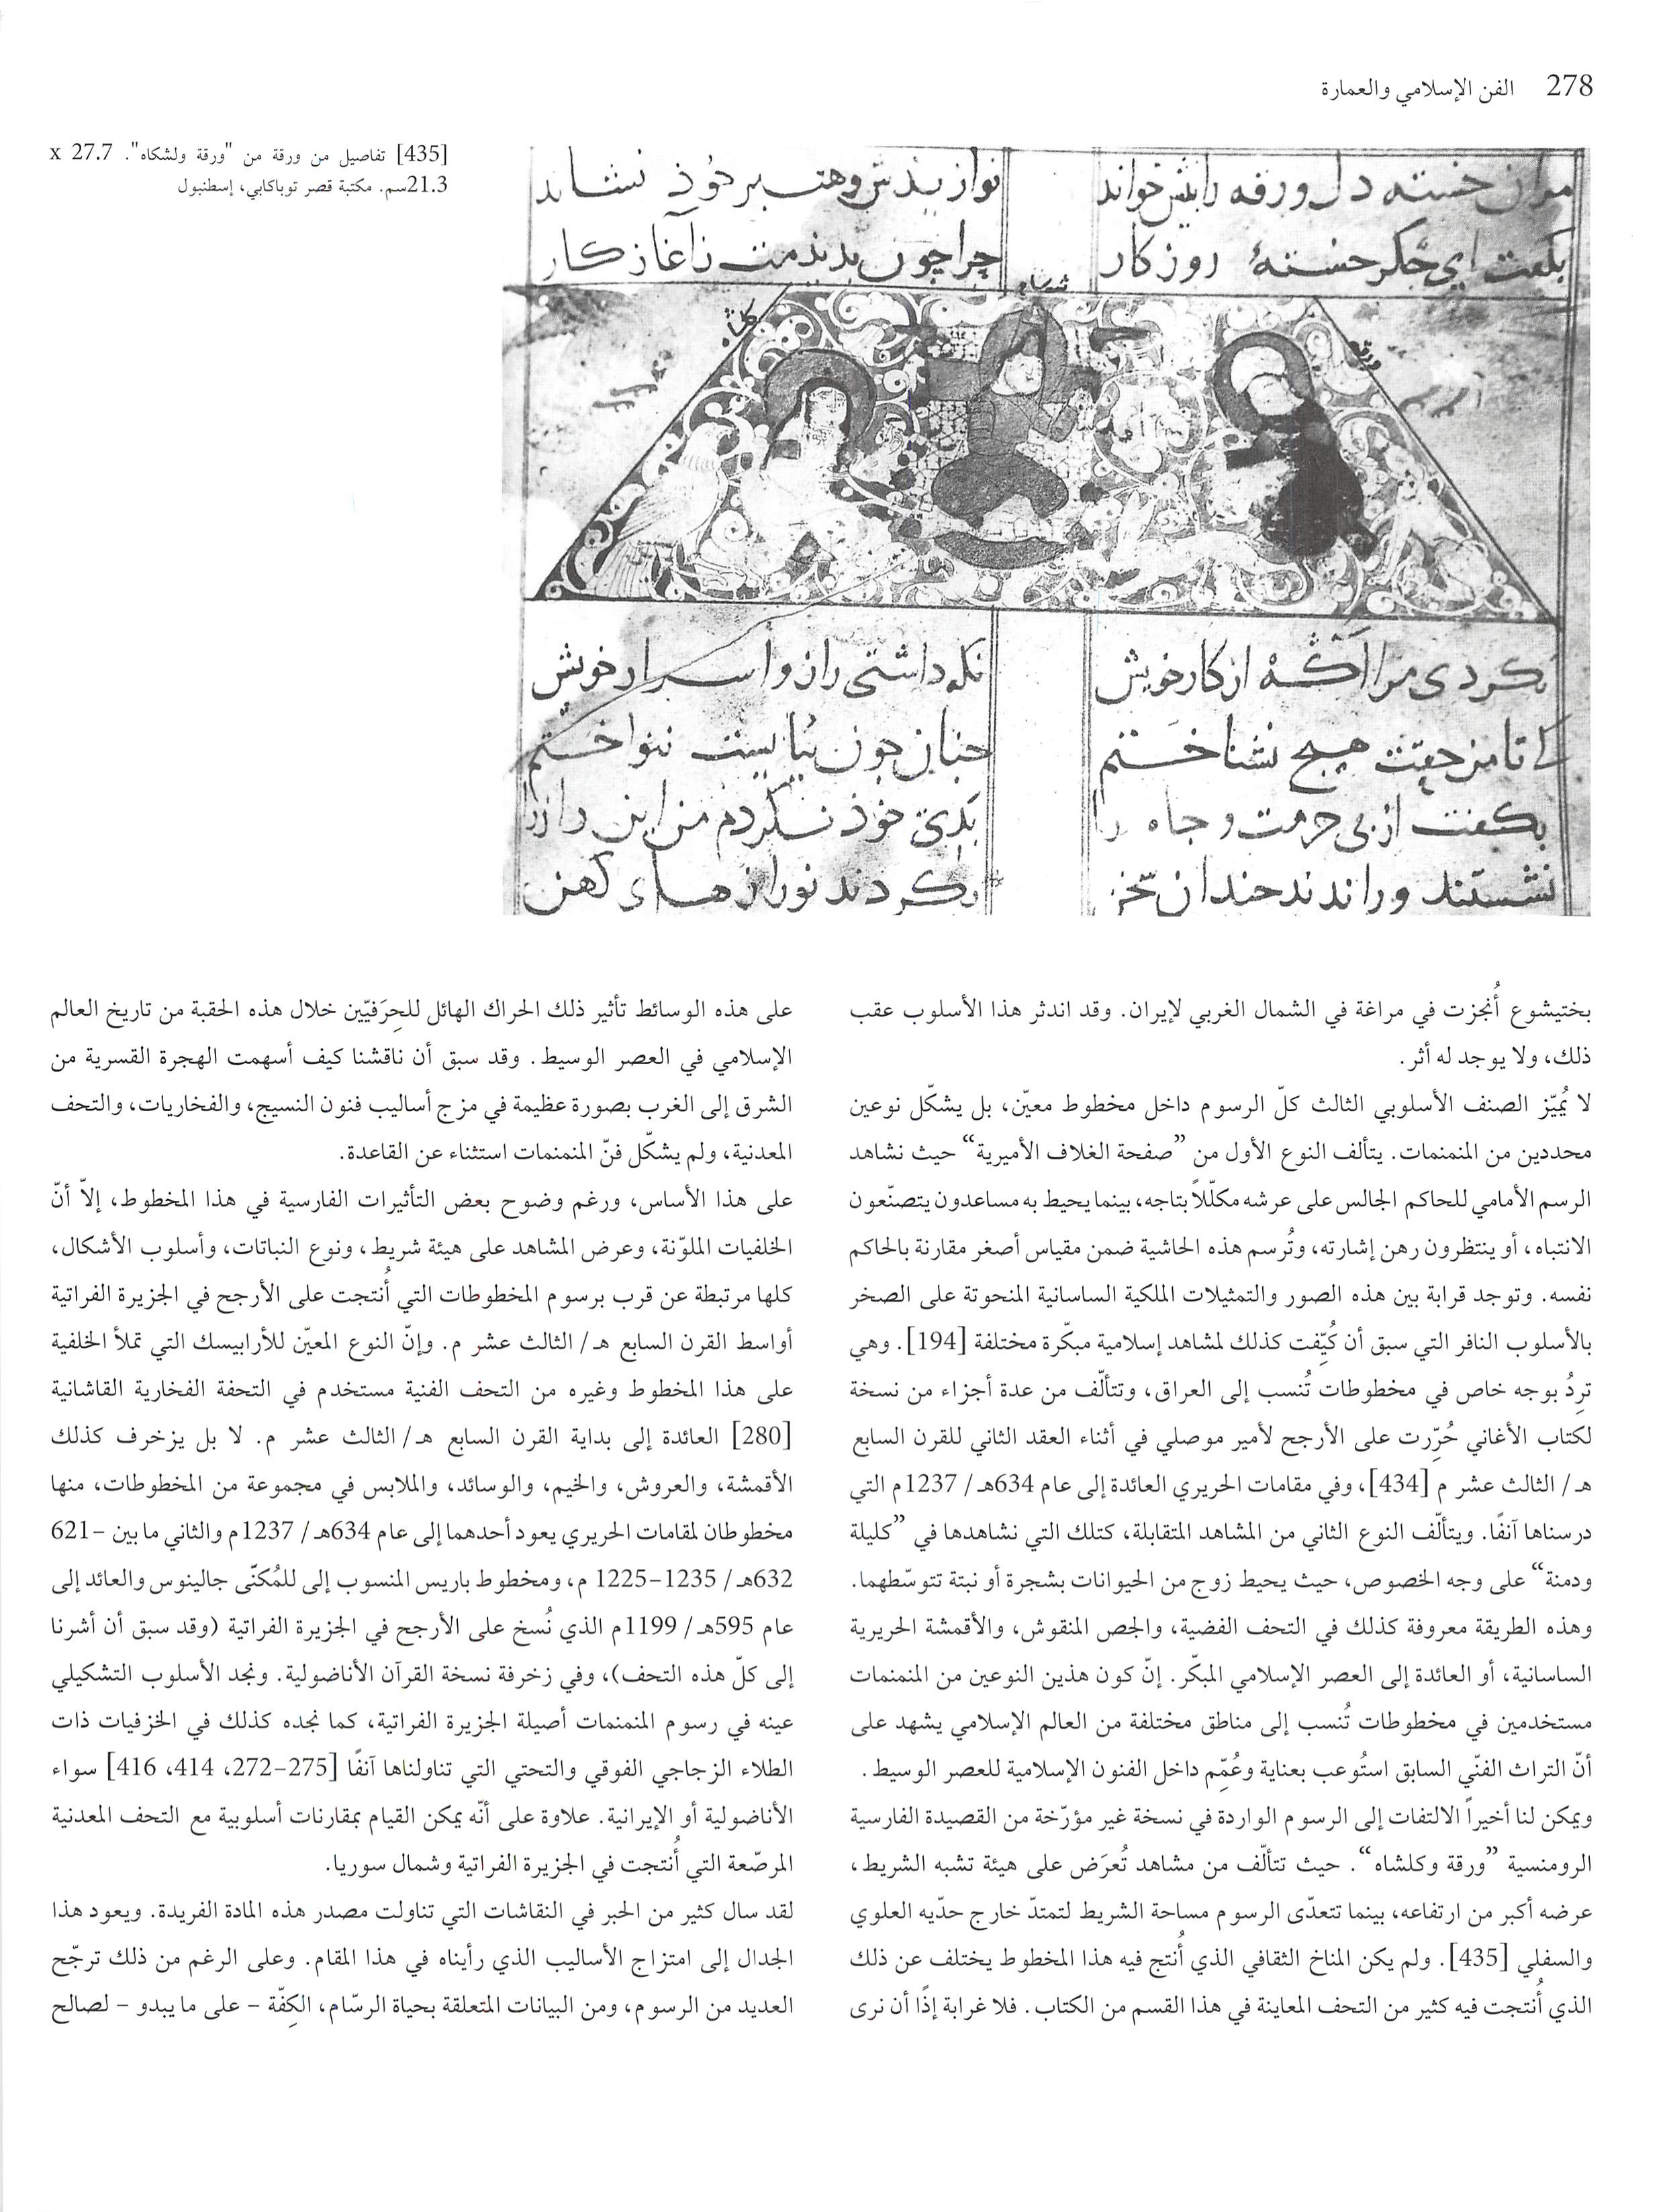 278 الفن الإسلامي والعمارة
[435] تفاصيل من ورقة من "ورقة ولشكاه". 27.7 x
21.3سم. مكتبة قصر توباكابي، إسطنبول
دل ورقه را
روزكار
نكه داشتى راز و اسرار خويش
از كار خويش
هيج نشناختم
بكفت از بى حرمت و جاه را
بختيشوع أُنجزت في مراغة في الشمال الغربي لإيران. وقد اندثر هذا الأسلوب عقب
ذلك، ولا يوجد له أثر.
لا يُميّز الصنف الأسلوبي الثالث كلّ الرسوم داخل مخطوط معيّن، بل يشكّل نوعين
محددين من المنمنمات. يتألف النوع الأول من ”صفحة الغلاف الأميرية“ حيث نشاهد
الرسم الأمامي للحاكم الجالس على عرشه مكلّلاً بتاجه، بينما يحيط به مساعدون يتصنّعون
الانتباه، أو ينتظرون رهن إشارته، وتُرسم هذه الحاشية ضمن مقياس أصغر مقارنة بالحاكم
نفسه. وتوجد قرابة بين هذه الصور والتمثيلات الملكية الساسانية المنحوتة على الصخر
بالأسلوب النافر التي سبق أن كُيّفت كذلك لمشاهد إسلامية مبكّرة مختلفة [194]. وهي
ترِدُ بوجه خاص في مخطوطات تُنسب إلى العراق، وتتألّف من عدة أجزاء من نسخة
لكتاب الأغاني حُرّرت على الأرجح لأمير موصلي في أثناء العقد الثاني للقرن السابع
هـ/ الثالث عشر م [434]، وفي مقامات الحريري العائدة إلى عام 634هـ/ 1237م التي
درسناها آنفًا. ويتألّف النوع الثاني من المشاهد المتقابلة، كتلك التي نشاهدها في ”كليلة
ودمنة“ على وجه الخصوص، حيث يحيط زوج من الحيوانات بشجرة أو نبتة تتوسّطهما.
وهذه الطريقة معروفة كذلك في التحف الفضية، والجص المنقوش، والأقمشة الحريرية
الساسانية، أو العائدة إلى العصر الإسلامي المبكّر. إنّ كون هذين النوعين من المنمنمات
مستخدمين في مخطوطات تُنسب إلى مناطق مختلفة من العالم الإسلامي يشهد على
أنّ التراث الفنّي السابق استُوعب بعناية وعُمّم داخل الفنون الإسلامية للعصر الوسيط.
ويمكن لنا أخيراً الالتفات إلى الرسوم الواردة في نسخة غير مؤرّخة من القصيدة الفارسية
الرومنسية ”ورقة وكلشاه“. حيث تتألّف من مشاهد تُعرَض على هيئة تشبه الشريط،
عرضه أكبر من ارتفاعه، بينما تتعدّى الرسوم مساحة الشريط لتمتدّ خارج حدّيه العلوي
والسفلي [435]. ولم يكن المناخ الثقافي الذي أُنتج فيه هذا المخطوط يختلف عن ذلك
الذي أُنتجت فيه كثير من التحف المعاينة في هذا القسم من الكتاب. فلا غرابة إذًا أن نرى
على هذه الوسائط تأثير ذلك الحراك الهائل للحِرَفيّين خلال هذه الحقبة من تاريخ العالم
الإسلامي في العصر الوسيط. وقد سبق أن ناقشنا كيف أسهمت الهجرة القسرية من
الشرق إلى الغرب بصورة عظيمة في مزج أساليب فنون النسيج، والفخاريات، والتحف
المعدنية، ولم يشكّل فنّ المنمنمات استثناء عن القاعدة.
على هذا الأساس، ورغم وضوح بعض التأثيرات الفارسية في هذا المخطوط، إلاّ أنّ
الخلفيات الملوّنة، وعرض المشاهد على هيئة شريط، ونوع النباتات، وأسلوب الأشكال،
كلها مرتبطة عن قرب برسوم المخطوطات التي أُنتجت على الأرجح في الجزيرة الفراتية
أواسط القرن السابع هـ/ الثالث عشر م. وإنّ النوع المعيّن للأرابيسك التي تملأ الخلفية
على هذا المخطوط وغيره من التحف الفنية مستخدم في التحفة الفخارية القاشانية
[280] العائدة إلى بداية القرن السابع هـ/ الثالث عشر م. لا بل يزخرف كذلك
الأقمشة، والعروش، والخيم، والوسائد، والملابس في مجموعة من المخطوطات، منها
مخطوطان لمقامات الحريري يعود أحدهما إلى عام 634هـ/ 1237م والثاني ما بين 621–
632هـ/ 1225–1235 م، ومخطوط باريس المنسوب إلى للمُكنّى جالينوس والعائد إلى
عام 595هـ/ 1199م الذي نُسخ على الأرجح في الجزيرة الفراتية (وقد سبق أن أشرنا
إلى كلّ هذه التحف)، وفي زخرفة نسخة القرآن الأناضولية. ونجد الأسلوب التشكيلي
عينه في رسوم المنمنمات أصيلة الجزيرة الفراتية، كما نجده كذلك في الخزفيات ذات
الطلاء الزجاجي الفوقي والتحتي التي تناولناها آنفًا [272–275، 414، 416] سواء
الأناضولية أو الإيرانية. علاوة على أنّه يمكن القيام بمقارنات أسلوبية مع التحف المعدنية
المرصّعة التي أُنتجت في الجزيرة الفراتية وشمال سوريا.
لقد سال كثير من الحبر في النقاشات التي تناولت مصدر هذه المادة الفريدة. ويعود هذا
الجدال إلى امتزاج الأساليب الذي رأيناه في هذا المقام. وعلى الرغم من ذلك ترجّح
العديد من الرسوم، ومن البيانات المتعلقة بحياة الرسّام، الكِفّة – على ما يبدو – لصالح